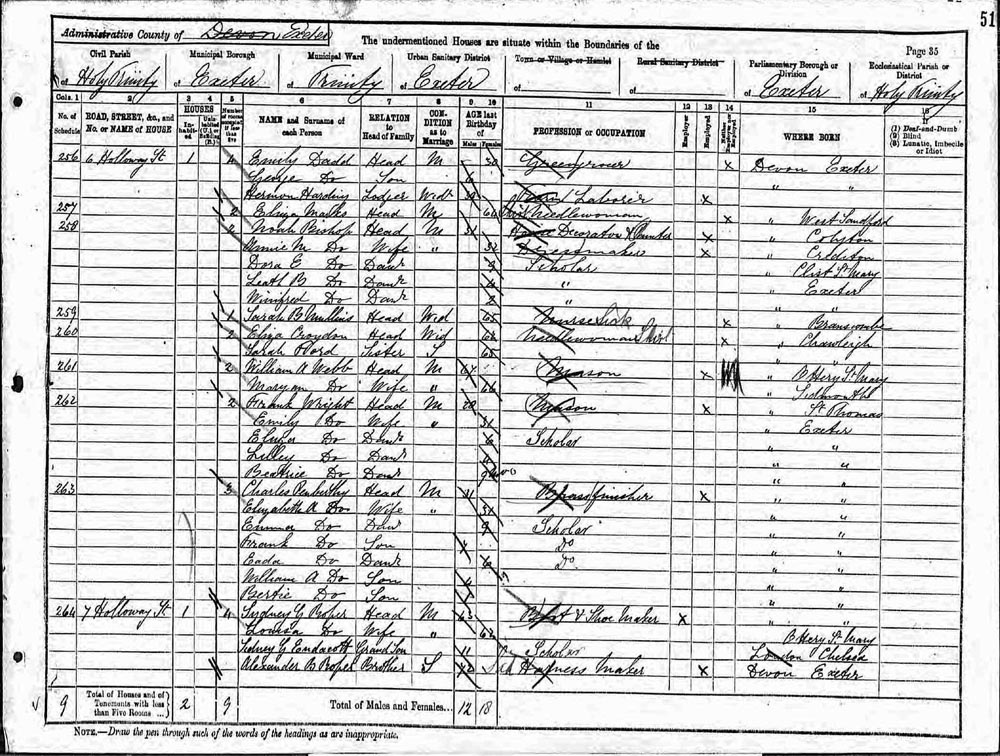 51
Administrative County of Devon Exeter
The undermentioned Houses are situate within the Boundaries of the
Page 35
Civil Parish
Municipal Borough
Municipal Ward
Urban Sanitary District
Town or Village or Hamlet
Rural Sanitary District
Parliamentary Borough or Division
Ecclesiastical Parish or District
of Holy Trinity
of Exeter
of Trinity
of Exeter
of
of
of Exeter
of Holy Trinity
Cols. 1 2 3 4 5 6 7 8 9 10 11 12 13 14 15 16
No. of Schedule
ROAD, STREET, &c., and No. or NAME of HOUSE
HOUSES
Inhabited
Uninhabited (U.) or Building (B.)
Number of rooms occupied if less than five
NAME and Surname of each Person
RELATION to Head of Family
CONDITION as to Marriage
AGE last Birthday of
Males Females
PROFESSION or OCCUPATION
Employer
Employed
Neither Employer nor Employed
WHERE BORN
(1) Deaf-and-Dumb
(2) Blind
(3) Lunatic, Imbecile or Idiot
256 6 Holloway St 1 4 Emily Dadd Head M 30 Greengrocer x Devon Exeter
George Do Son 6 " "
Hermon Harding Lodger Widr Laborer x
257 2 Eliza Malks Head M 64 Needlewoman x " West Sandford
258 2 Noah Bishop Head M 31 House Decorator & Painter x " Colyton
Annie M. Do Wife " 32 Dressmaker x " Crediton
Dora E Do Daur 9 Scholar " Clist St Mary
Leath B Do Daur " " Exeter
Winifred Do Daur 2 "
259 1 Sarah B Mullins Head Wid 65 Nurse Sick x " Branscombe
260 2 Eliza Croydon Head Wid Needlewoman Shirt x " Chawleigh
Sarah Do Sister S 68 " "
261 2 William A Webb Head M 64 Mason x " Ottery St Mary
Maryan Do Wife " 66 " Sidmouth
262 2 Frank Wright Head M 28 Mason x " St Thomas
Emily Do Wife " 31 " Exeter
Do Daur 6 Scholar " "
Lilley Do Daur " "
Beatrice Do Daur " "
263 3 Charles Penberthy Head M 31 Brass finisher x " "
Elizabeth A Do Wife " 31 " "
Emma Do Daur 9 Scholar " "
Frank Do Son Do " "
Eada Do Daur 6 Do " "
William A Do Son " "
Bertie Do Son " "
264 7 Holloway St 1 4 Sydney G Roper Head M 63 Boot & Shoe Maker x " "
Louisa Do Wife " 62 Ottery St Mary
Sidney G Endacott Grand Son 11 Scholar London Chelsea
Alexander B Roper Brother S Harness Maker x Devon Exeter
9 Total of Houses and of Tenements with less than Five Rooms ... 2 9 Total of Males and Females... 12 18
NOTE.—Draw the pen through such of the words of the headings as are inappropriate.